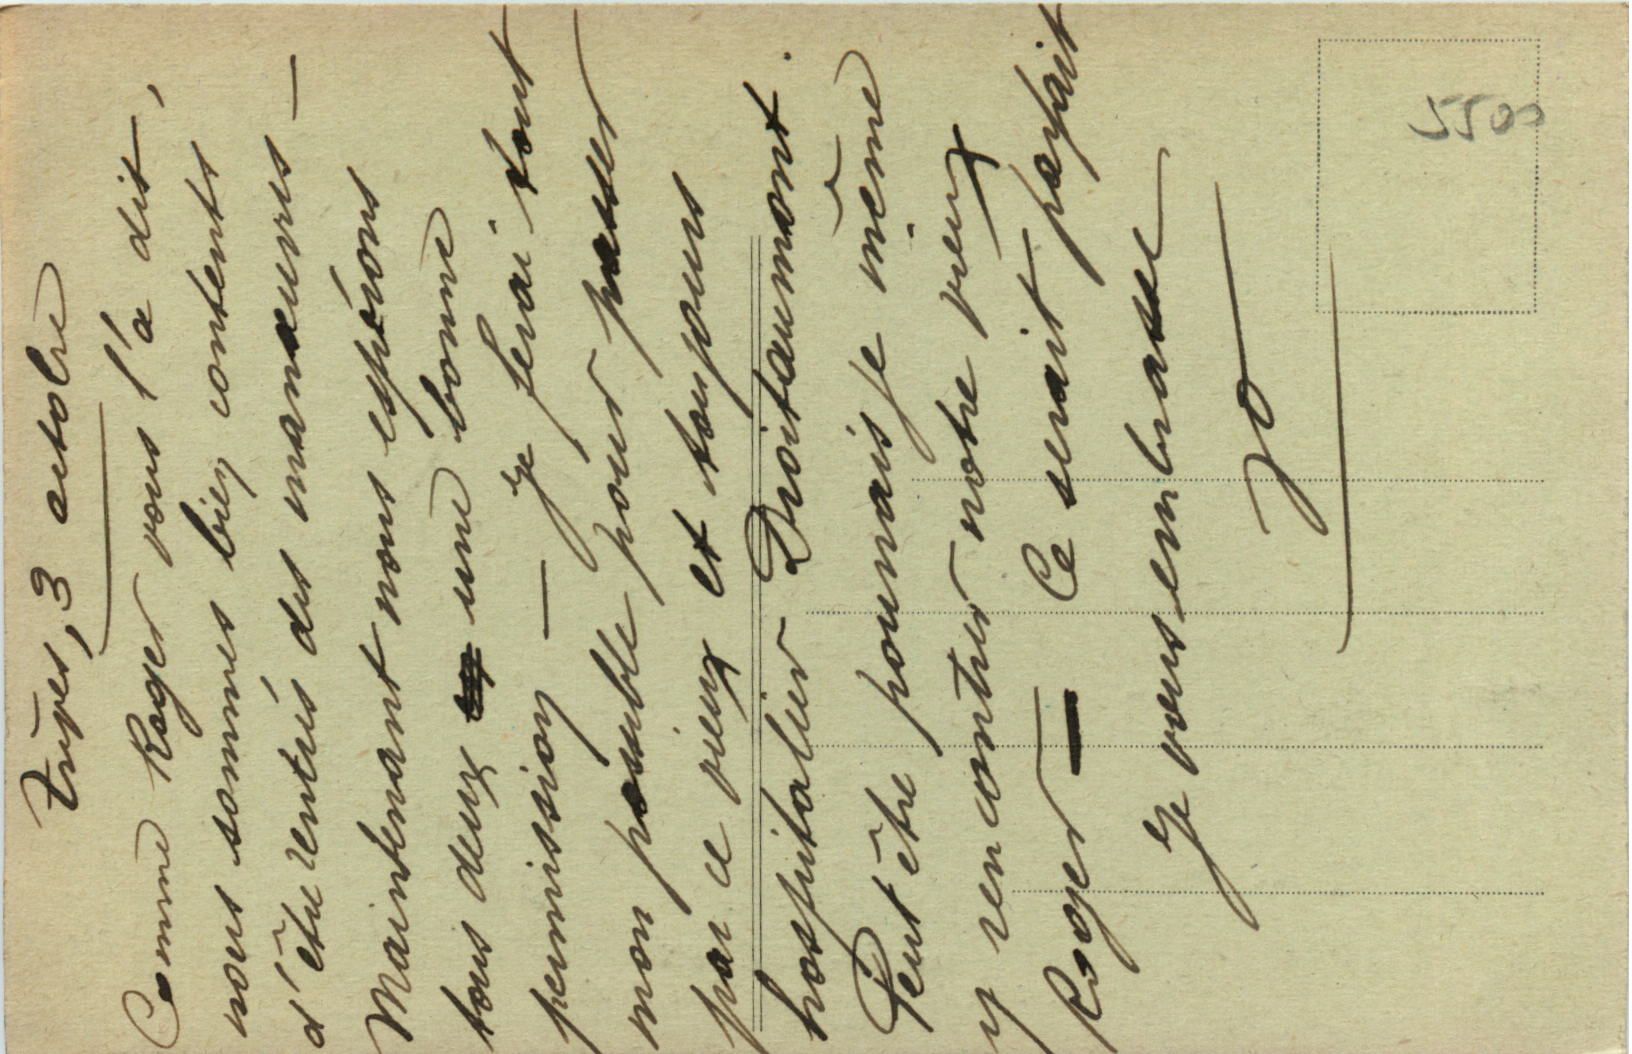 Trèves, 3 octobre
Comme Roger vous l'a dit,
nous sommes bien contents
d'être rentrés des manœuvres —
Maintenant nous espérons
tous deux une bonne
permission — Je ferai tout
mon possible pour passer
par ce vieux et toujours
hospitalier Droitaumont.
Peut être pourrais je même
y rencontrer notre vieux
Roger — Ce serait parfait
Je vous embrasse
Jo
5500